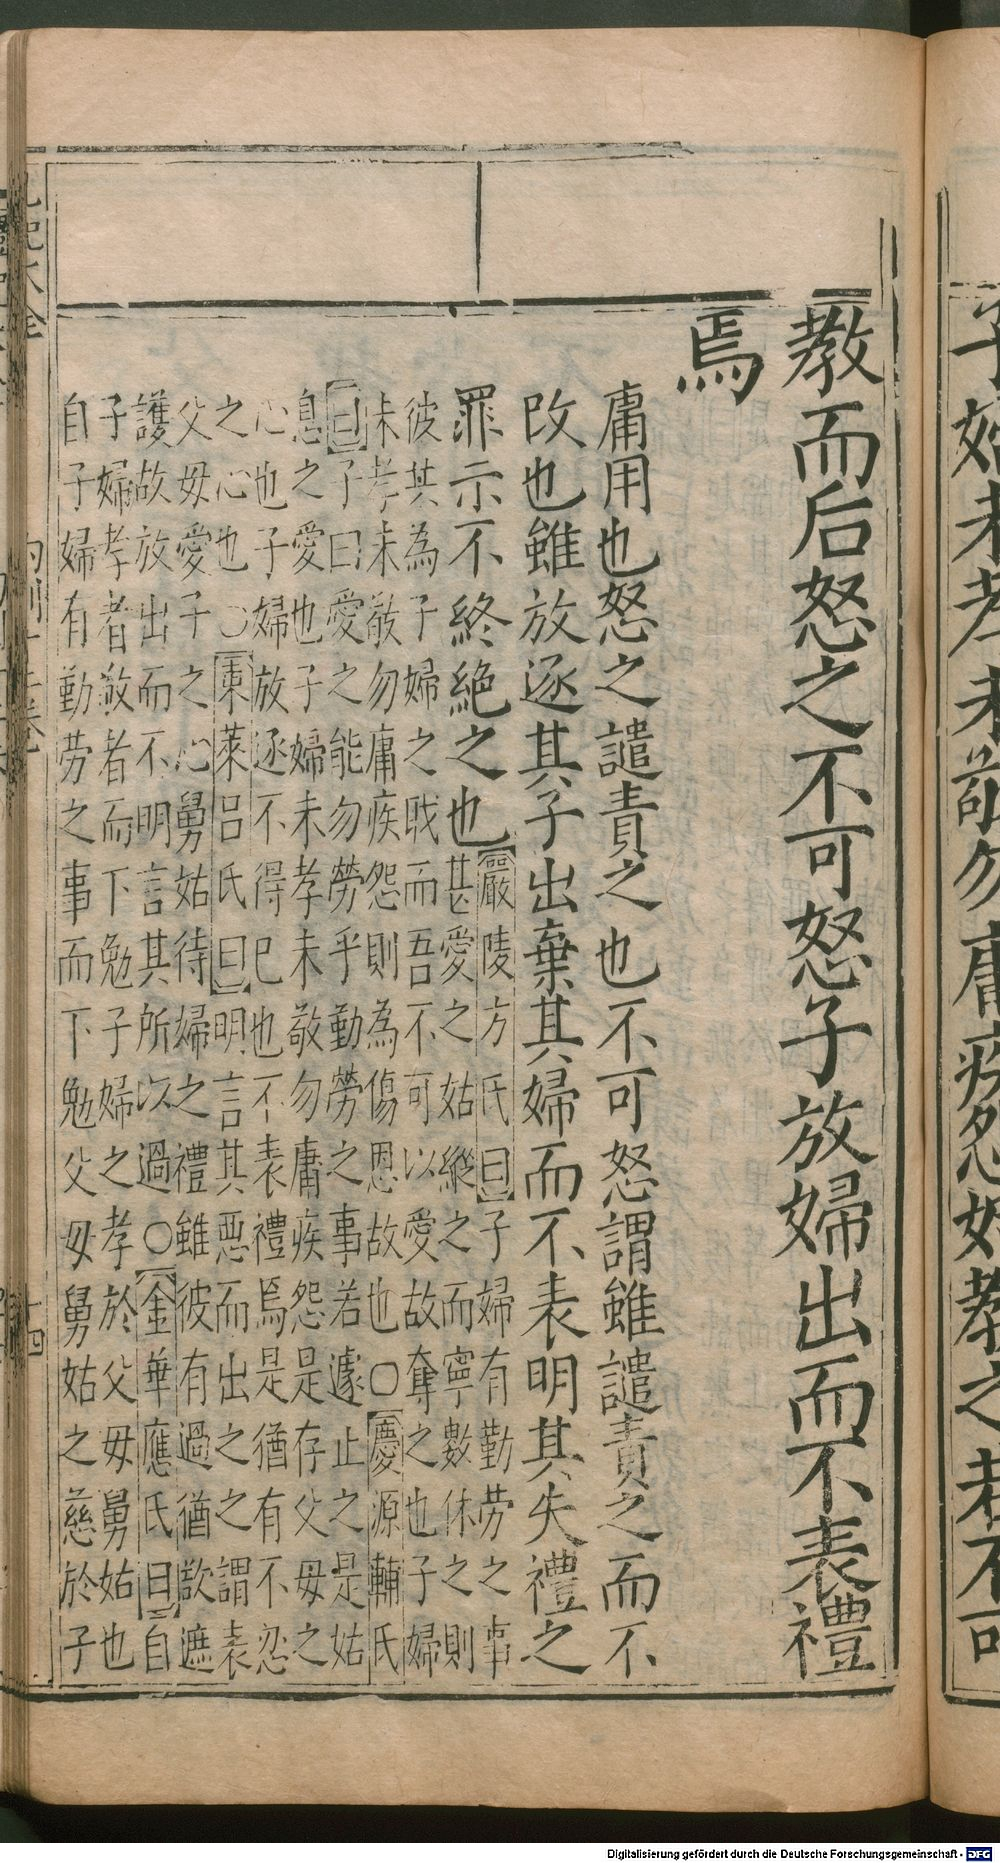 子婦未孝未敬勿庸疾怨姑教之若不可
教而后怒之不可怒子放婦出而不表禮
焉
庸用也怒之譴責之也不可怒謂雖譴責之而不
改也雖放逐其子出棄其婦而不表明其失禮之
罪示不終絕之也
嚴陵方氏曰子婦有勤劳之事
甚愛之姑縱之而寧數休之則
彼其為子婦之戝而吾不可以愛故奪之也子婦
未孝未敬勿庸疾怨則為傷恩故也○慶源輔氏
曰子曰愛之能勿勞乎勤勞之事若遽止之是姑
息之愛也子婦未孝未敬勿庸疾怨是存父母之
心也子婦放逐不得已也不表禮焉是猶有不忍
之心也○東萊呂氏曰明言其惡而出之之謂表
父母愛子之心舅姑待婦之禮雖彼有過猶欲遮
護故放出而不明言其所以過○金華應氏曰自
子婦孝者敬者而下勉子婦之孝於父母舅姑也
自子婦有勤劳之事而下勉父母舅姑之慈於子
十四
Digitalisierung gefördert durch die Deutsche Forschungsgemeinschaft - DFG